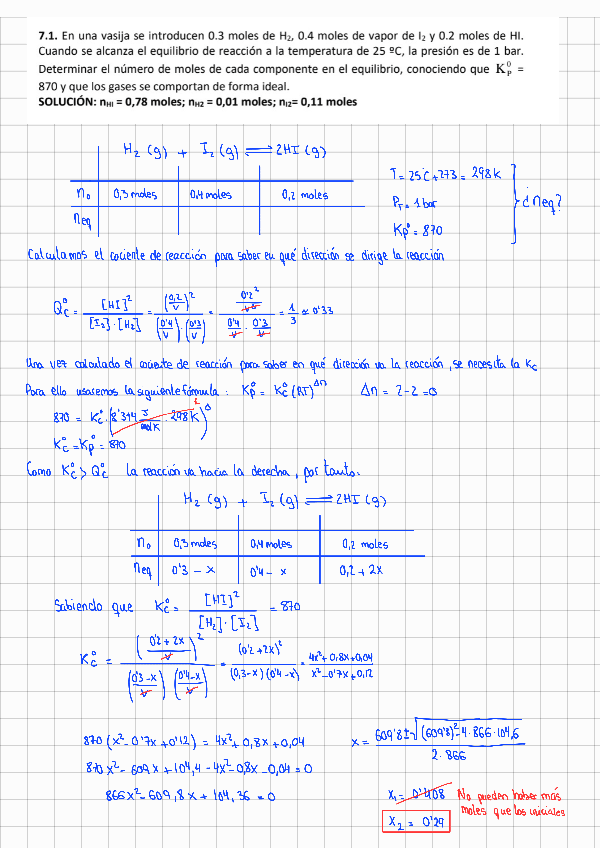 7.1. En una vasija se introducen 0.3 moles de H₂, 0.4 moles de vapor de I₂ y 0.2 moles de HI.
Cuando se alcanza el equilibrio de reacción a la temperatura de 25 ºC, la presión es de 1 bar.
Determinar el número de moles de cada componente en el equilibrio, conociendo que K⁰ₚ =
870 y que los gases se comportan de forma ideal.
SOLUCIÓN: nHI = 0,78 moles; nH2 = 0,01 moles; nI2= 0,11 moles
H₂ (g) + I₂ (g) ⇌ 2HI (g)
n₀ 0,3 moles 0,4 moles 0,2 moles
neq
T = 25°C + 273 = 298 K
P_T = 1 bar
Kp° = 870
¿neq?
Calculamos el cociente de reacción para saber en qué dirección se dirige la reacción
Qc° = [HI]² / [I₂]·[H₂] = (0,2/V)² / (0'4/V)·(0'3/V) = 0'2²/V² / 0'4/V · 0'3/V = 1/3 ≃ 0'33
Una vez calculado el cociente de reacción para saber en qué dirección va la reacción, se necesita la Kc
Para ello usaremos la siguiente fórmula: Kp° = Kc° (RT)^Δn Δn = 2-2 = 0
870 = Kc° · (8'314 J/mol K · 298 K)⁰
Kc° = Kp° = 870
Como Kc° > Qc° la reacción va hacia la derecha, por tanto.
H₂ (g) + I₂ (g) ⇌ 2HI (g)
n₀ 0,3 moles 0,4 moles 0,2 moles
neq 0'3 - x 0'4 - x 0,2 + 2x
Sabiendo que Kc° = [HI]² / [H₂]·[I₂] = 870
Kc° = (0'2 + 2x / V)² / (0'3-x / V) (0'4-x / V) = (0'2 + 2x)² / (0,3-x) (0'4-x) = 4x² + 0,8x + 0,04 / x² - 0'7x + 0,12
870 (x² - 0'7x + 0'12) = 4x² + 0,8x + 0,04
870x² - 609x + 104,4 - 4x² - 0,8x - 0,04 = 0
866x² - 609,8x + 104,36 = 0
x = 609'8 ± √(609'8)² - 4·866·104,6 / 2·866
x₁ = 0'408 No pueden haber más
moles que los iniciales
x₂ = 0'29